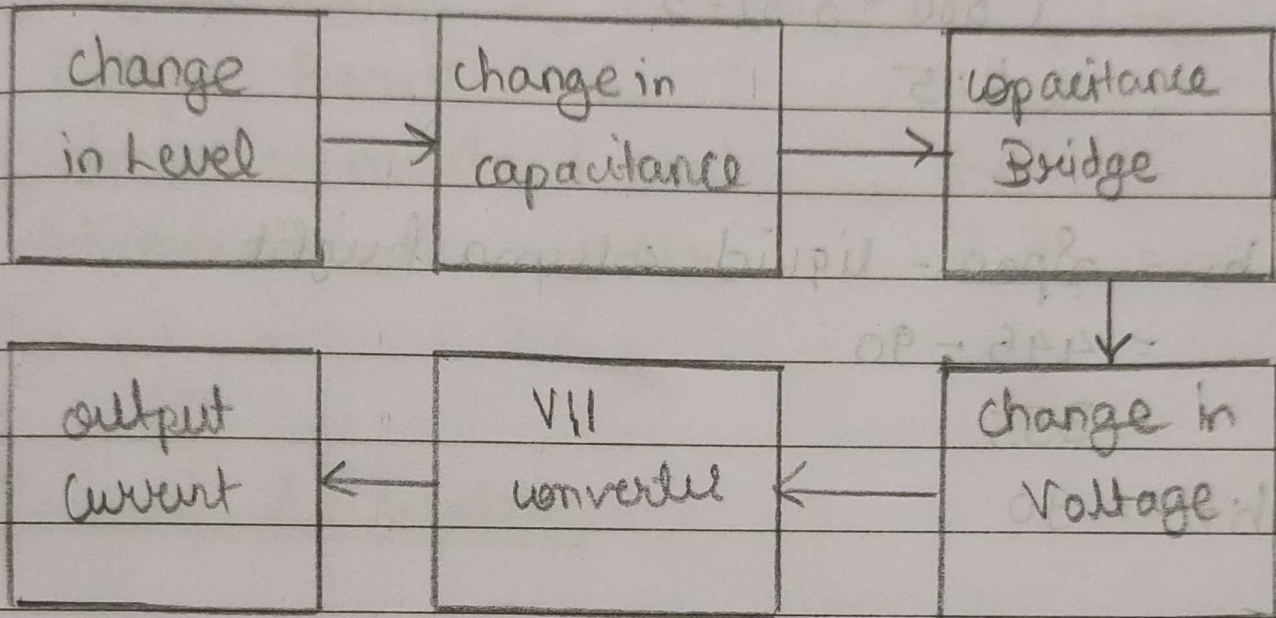 change
in Level
change in
capacitance
capacitance
Bridge
change in
Voltage.
V\I
converter
output
current